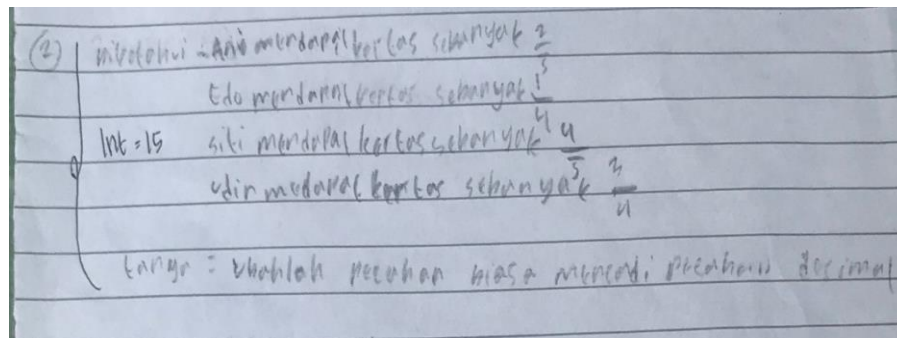 (2) Diketahui - Ani mendapat kertas sebanyak 2/5
Edo mendapat kertas sebanyak 1/4
Int = 15 siti mendapat kertas sebanyak 4/5
udin medapat kertas sebanyak 3/4
tanya = Ubahlah pecahan biasa menjadi pecahan desimal